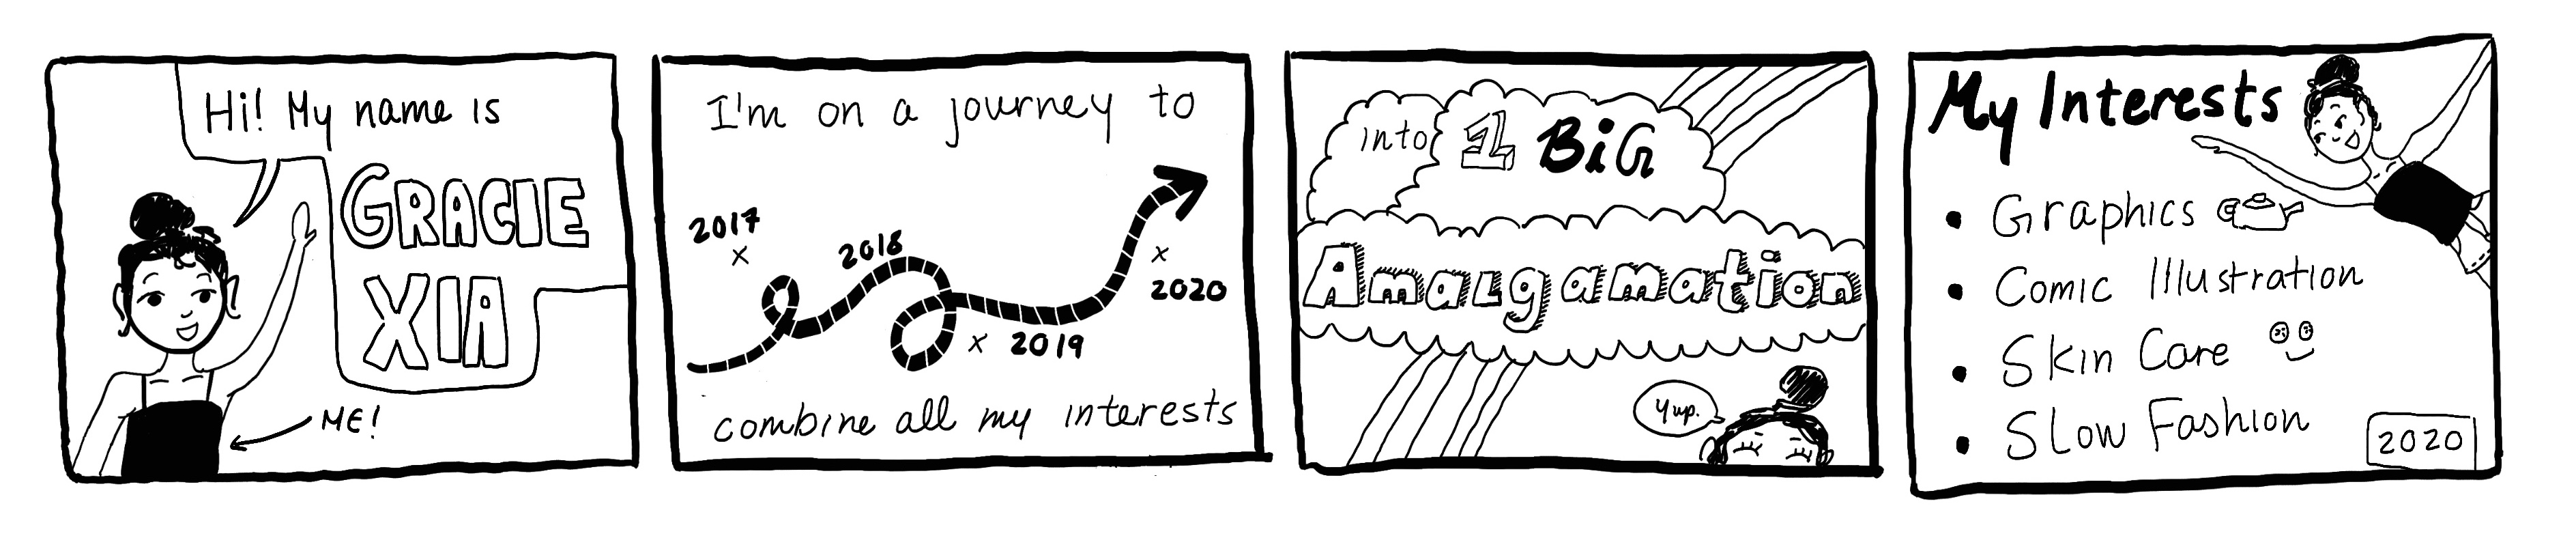 Hi! My name is
GRACIE
XIA
ME!
I'm on a journey to
2017
2018
2019
2020
combine all my interests
into 1 BiG
Amalgamation
Yup.
My Interests
• Graphics
• Comic Illustration
• Skin Care
• Slow Fashion
2020